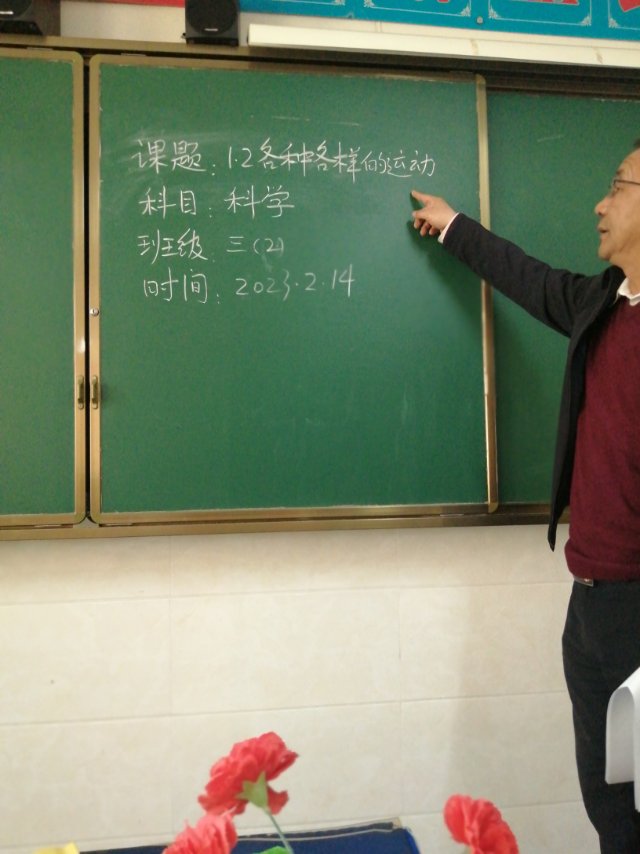 课题：1.2各种各样的运动
科目：科学
班级：三（2）
时间：2023.2.14